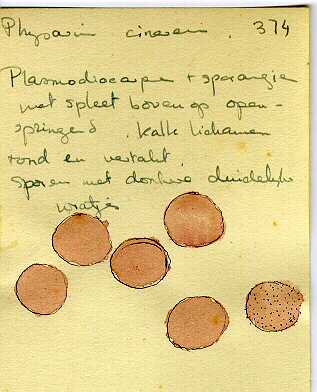 Physarum cinereum. 374
Plasmodiocarpen + sporangien
met spleet bovenop open-
springend. Kalklichamen
rond en vertakt.
sporen met donkere duidelijke
wratjes